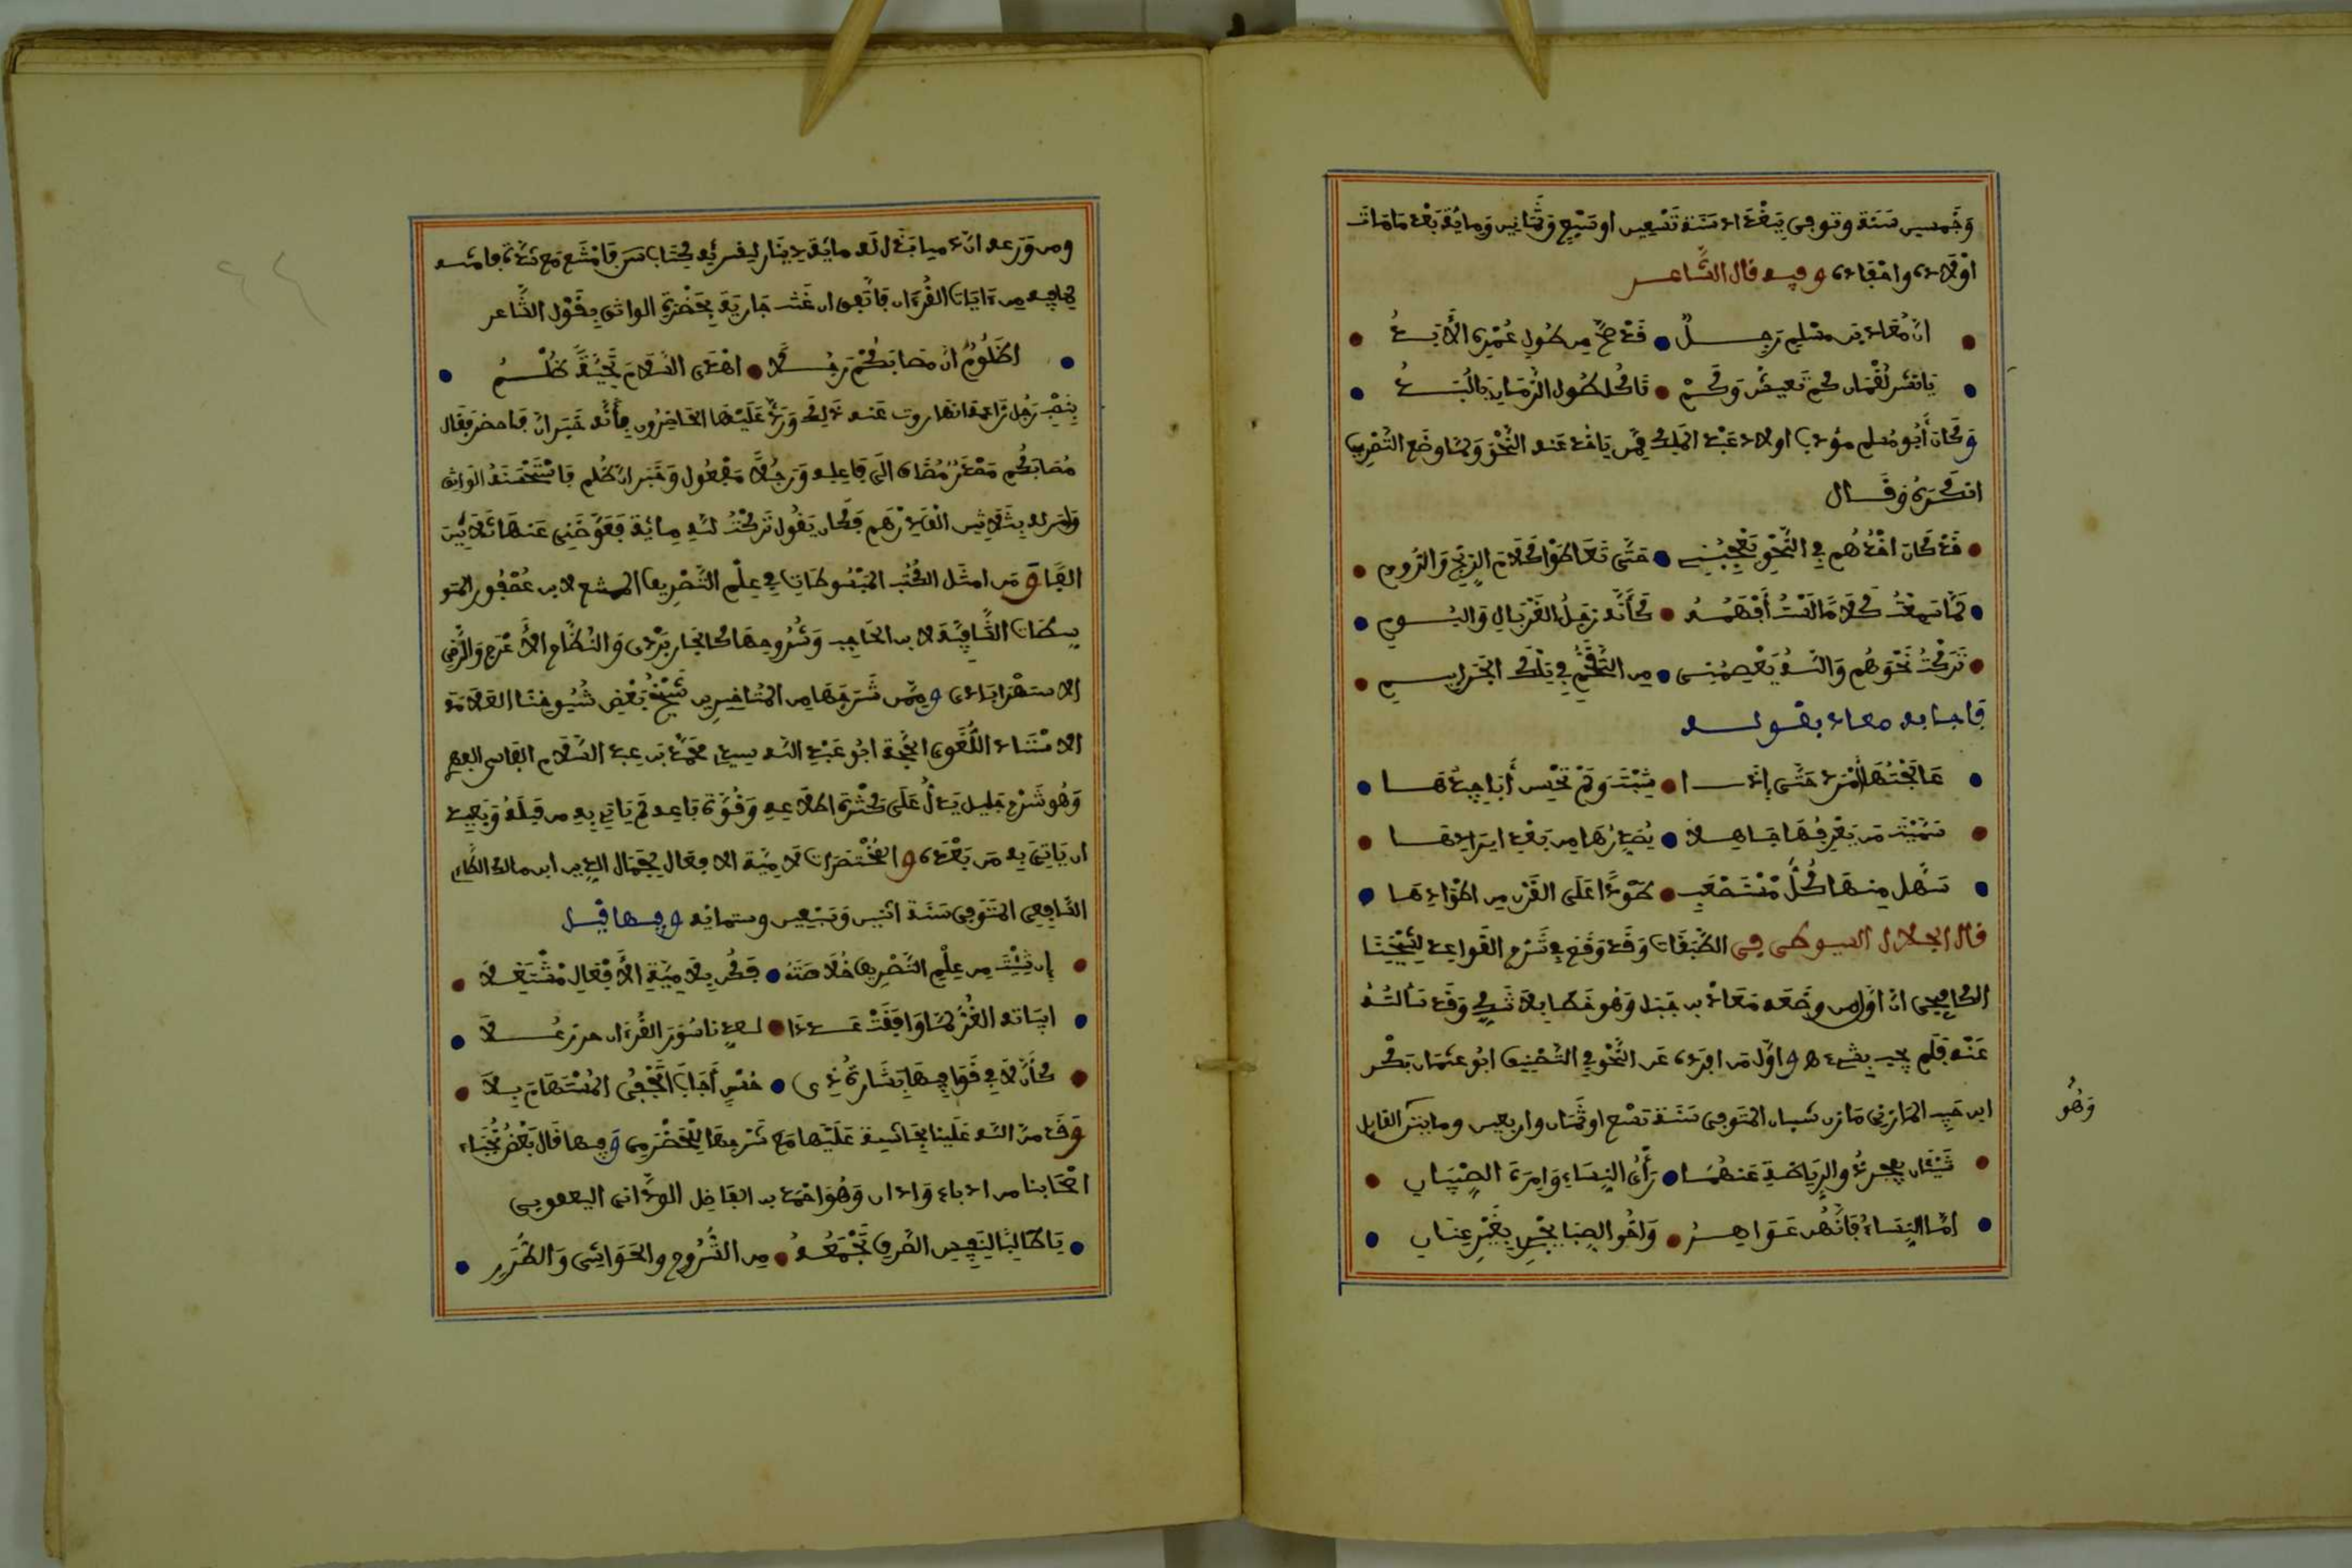 وَخَمسين سَنَة وتوفي بِبَغْدَاد سَنَة تَسْعِين او سَبْعٍ وَثَمَانِين وَمِايُة بَعْدَ مَا مَاتَ
اوْلَادُه واحْفَادُه وفيه قال الشَّاعر
انّ مُعَاذ بن مسْلِم رَجِـلٌ قَدْ ضَجَّ من طُولِ عُمْرِه الأَبَدُ
يَا نَسْرَ لُقْمَان كم تَعِيشُ وَكَمْ تَاكُل طُول الزَّمَانِ يَا لُبَدُ
وَكَانَ أَبُو مُسلم مؤدب اولاد عَبْد الملك قد نَظر عنه النَّحْوَ وَلمّا وضع التَّصْرِيب
انكَرَهُ وَقَـال
قَدْ كَانَ اخْذُهُم فِي النَّحْوِ يُعْجِبُنِي حَتَّى تَعَاطَوْا كَلَامَ الزِنْجِ وَالرُّومِ
لَمَّا سَمِعْتُ كَلَامًا لَسْتُ أَفْهَمُـهُ كَأَنَّه زَجَلُ الغِرْبَالِ وَالبُـومِ
تَرَكْتُ نَحْوَهُم وَاللّـهُ يَعْصِمُنِي مِن التَّقَحُّمِ فِي تِلْكَ الجَرَاثِيـمِ
فاجابه معاذ بقولـه
عَالَجْتَهَا أَمْرَدَ حَتَّى إِذَا شِبْتَ وَلَمْ تُحْسِن أَبَاجِدهَـا
سَمَّيْتَ مَن يَعْرِفُهَا جَاهِـلا يُصْدِرُهَا مِن بَعْدِ ايرَادِهَـا
سَهَّل مِنهَا كُلَّ مُسْتَصْعَبٍ طَوْدًا عَلَى القَرْنِ مِن اطْوَادِهَـا
قال الجلال السيوطى في الطَّبَقَات وَقَد وَقَع فِي شَرْح القَواعِد لِشَيْخِنَا
الكافيجي انّ اوّل من وضَعَه مَعَاذُ بن جَبَل وَهُو خَطَأ بِلَا شَكٍّ وَقَد سَألتُـهُ
عَنْه فَلَم يجب بِشَىءٍ ه وَاوّل مَن افْرَدَه عَن النَّحْو فِي التَّصْنِيف ابُو عثمان بَكْر
ابن حبيب المازني مَازِن شيبان المتوفى سَنَة تسْع او ثَمَان واربعين ومايتين القايل
وَهُو
شَيْئَان يعجزُ ذو الرِيَاضَةِ عَنهُمَا رَأْىُ النِسَاءِ وَامْرَةُ الصِّبْيَانِ
امَّا النِسَاءُ فَانَّهُن عَوَاهِـرٌ وَاخُو الصِبَا يَجْرِي بِغَيْرِ عِنَانِ
ومن وَرَعه انّ ذميا بَذَل لَه مايُة دِينَار ليقرئه كِتَاب س فَامْتَنَع مَع شِدَّةِ فاقتـه
لِمَا فيه من ءَايَات القُرْءَان فَاتَّفق ان غَنّت جَاريَة بِحَضْرَةِ الواثق بِقَوْل الشَّاعر
اظَلُومُ انَّ مصَابَكُمْ رَجُـلًا اهْدَى السَّلامَ تَحِيَّةً ظُلْـمُ
بِنَصْبِ رَجُل زَاعِمَة انّها روت عنه ذلِك وَرَدّ عَلَيْهَا الحَاضِرُون بِأَنَّه خَبَر انّ فاحضر فقال
مُصَابكُم مَصْدَرٌ مُضَاف الَى فَاعِلِه وَرَجُلًا مَفْعُول وَخَبَر انّ ظُلم فاسْتَحْسَنَهُ الوَاثِق
وَامَر له بِثَلاثِين الْفَ دِرْهَم فَكَان يَقُول تَرَكْتُ للهِ مِايَة فَعَوَّضَنِي عَنهَا ثَلَاثِين
الفًا وَمن امثَل الكُتُب المبْسُوطَات فِي عِلْم التَّصْرِيف الممتع لابن عُصْفُور المتو
سِطَات الشَّافِيَة لابن الحَاجِب وَشُرُوحهَا كالجاربَرْدِى وَالنِّظَّام الأَعْرَج وَالرَّضِي
الاستَرابَاذِى وَمِمَّن شَرَحَهَا من المُتَاخِرِين شَيْخُ بَعْضِ شُيُوخِنَا العَلّامَة
الاسْتَاذ اللُّغَوِى الحُجَّة ابُو عَبْدِ اللّه سيدي مُحَمَّد بن عبد السَّلَام الفاسى العِهر
وَهُو شَرْح جَلِيل يَدُلُّ عَلَى كَثْرَةِ اطّلَاعِهِ وَقُوَّةِ بَاعِه لَم يَاتِ بِهِ مَن قَبْلَهُ وَبَعِيد
ان يَاتِيَ بِه مَن بَعْدَه وَالمخْتَصَرات لامِيَّة الافعَال لِجمَال الدِين ابن مالك الطَّاءي
الشَّافِعى المتَوَفى سَنَة اثنين وَسَبْعِين وستمائه وفيها قيل
إِن شِئْتَ مِن عِلْمِ التَّصْرِيف خُلَاصَتَهُ فَكُن بِلَامِيَّةِ الأَفْعَالِ مُشْتَغِـلًا
ابيَاته الغُرُّ لمَّا وَافَقَتْ عَـدَدًا لـعِدَّةِ سُوَر القُرْءَان حز زُحَـلًا
كأَنَّ لَا فِي قَوَافِيهَا بِشَارَةُ ذِى حُسْنٍ أَجَابَ الْمُحِبَّ المُسْتَهَامَ بِـلَا
وَقَد منّ اللّه عَلَينا بحَاشِية عَلَيْهَا مَع شَرحِهَا لِلْحَضْرَمِى وَفيها قَال بَعْضُ نُجَبَاء
اصْحَابنا من ادباء وَادان وَهُوَ احْمَد بن الفَاضِل الوَدَّاني اليعقوبي
يَا طَالِبًا لِنَفِيسِ الصَّرفِ تَجْمَعُـهُ مِن الشُّرُوحِ وَالحَوَاشِي وَالطُّرَرِ